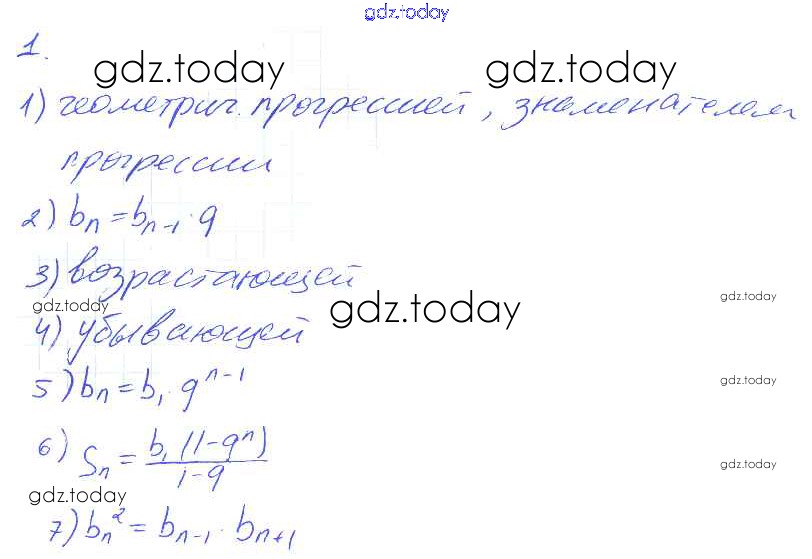 gdz.today
1.
gdz.today gdz.today
1) геометрич. прогрессией, знаменателем
прогрессии
2) bₙ = bₙ₋₁ · q
3) возрастающей
gdz.today gdz.today gdz.today
4) убывающей
5) bₙ = b₁ · qⁿ⁻¹
gdz.today
6) Sₙ = b₁(1-qⁿ)/1-q
gdz.today
gdz.today
7) bₙ² = bₙ₋₁ · bₙ₊₁